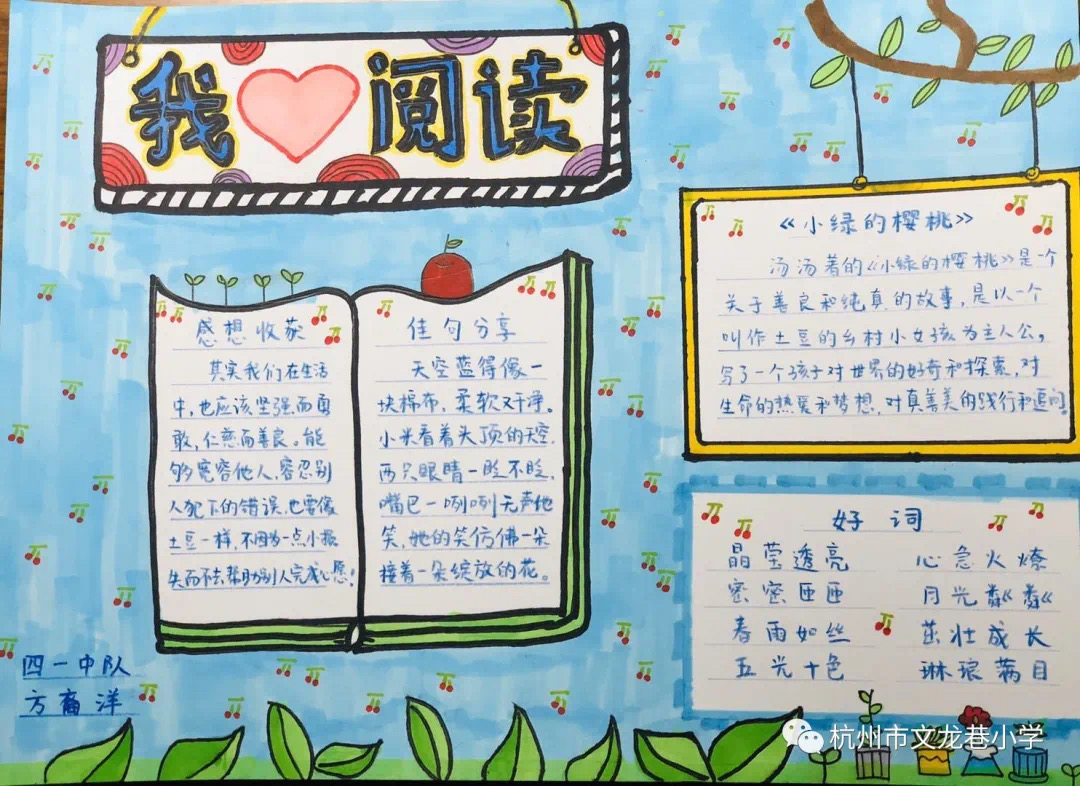 我阅读
《小绿的樱桃》
汤汤著的《小绿的樱桃》是个
关于善良和纯真的故事,是以一个
叫作土豆的乡村小女孩为主人公,
写了一个孩子对世界的好奇和探索,对
生命的热爱和梦想,对真善美的践行和追问
感想收获
其实我们在生活
中,也应该坚强而勇
敢,仁慈而善良。能
够宽容他人,容忍别
人犯下的错误,也要像
土豆一样,不因为一点小损
失而不去帮助别人完成心愿!
佳句分享
天空蓝得像一
块棉布,柔软又干净。
小米看着头顶的天空,
两只眼睛一眨不眨,
嘴巴一咧咧无声地
笑,她的笑仿佛一朵
接着一朵绽放的花。
好词
晶莹透亮 心急火燎
密密匝匝 月光粼粼
春雨如丝 茁壮成长
五光十色 琳琅满目
四一中队
方裔洋
杭州市文龙巷小学